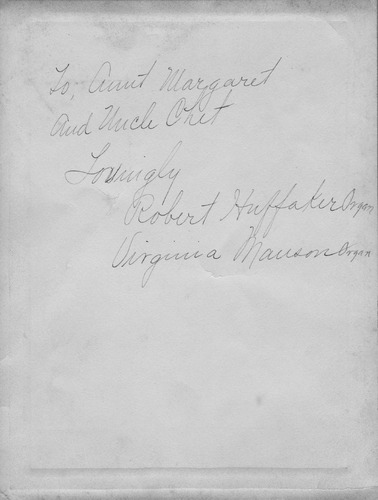 To, Aunt Margaret
And Uncle Chet
Lovingly
Robert Huffaker Organ
Virginia Manson Organ